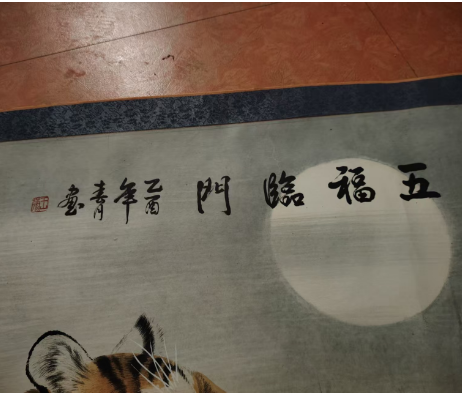 五福臨門 乙酉年青画